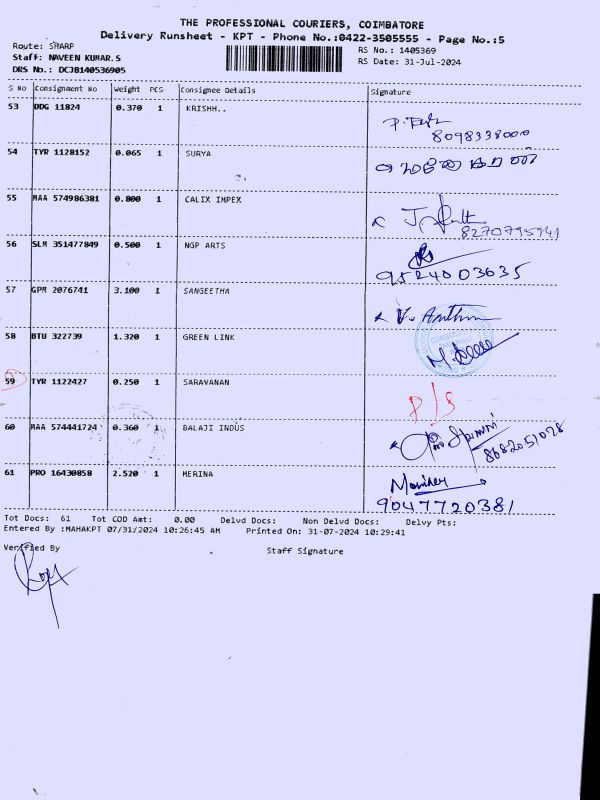 THE PROFESSIONAL COURIERS, COIMBATORE
Delivery Runsheet - KPT - Phone No.:0422-3505555 - Page No.:5
Route: SHARP
Staff: NAVEEN KUMAR.S
DRS No.: DCJB140536905
RS No.: 1405369
RS Date: 31-Jul-2024
S No Consignment No Weight PCS Consignee Details Signature
53 DDG 11824 0.370 1 KRISHH..
8098338000
54 TYR 1128152 0.065 1 SURYA
55 MAA 574986381 0.800 1 CALIX IMPEX
8270795941
56 SLM 351477849 0.500 1 NGP ARTS
9524003635
57 GPM 2076741 3.100 1 SANGEETHA
58 BTU 322739 1.320 1 GREEN LINK
59 TYR 1122427 0.250 1 SARAVANAN
P/S
60 MAA 574441724 0.360 1 BALAJI INDUS
8682051028
61 PRO 16430858 2.520 1 MERINA
9047720381
Tot Docs: 61 Tot COD Amt: 0.00 Delvd Docs: Non Delvd Docs: Delvy Pts:
Entered By :MAHAKPT 07/31/2024 10:26:45 AM Printed On: 31-07-2024 10:29:41
Verified By Staff Signature